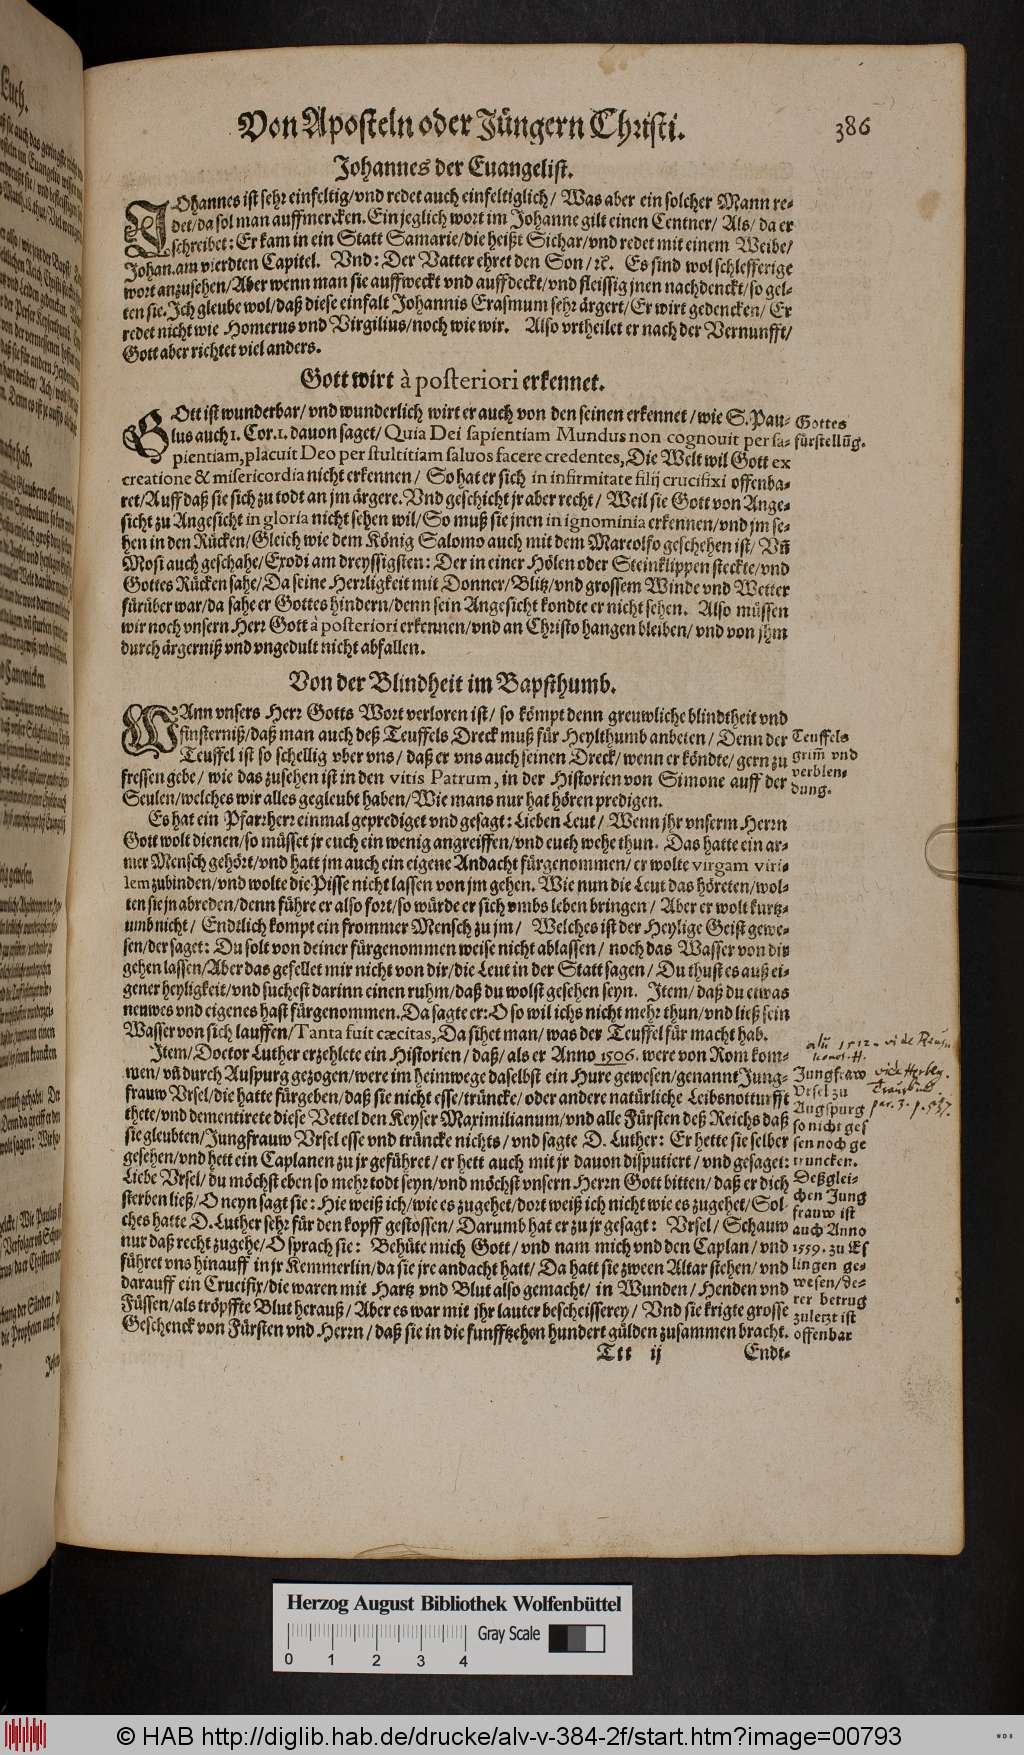 Von Aposteln oder Jüngern Christi. 386
Johannes der Euangelist.
JOhannes ist sehr einfeltig/vnd redet auch einfeltiglich/ Was aber ein solcher Mann re-
det/da sol man auffmercken. Ein jeglich wort im Johanne gilt einen Centner/ Als/ da er
schreibet: Er kam in ein Statt Samarie/die heißt Sichar/vnd redet mit einem Weibe/
Johan. am vierdten Capitel. Vnd: Der Vatter ehret den Son/ ꝛc. Es sind wol schlefferige
wort anzusehen/Aber wenn man sie auffweckt vnd auffdeckt/vnd fleissig jnen nachdenckt/so gel-
ten sie. Ich gleube wol/daß diese einfalt Johannis Erasmum sehr ärgert/Er wirt gedencken/ Er
redet nicht wie Homerus vnd Virgilius/noch wie wir. Also vrtheilet er nach der Vernunfft/
Gott aber richtet viel anders.
Gott wirt à posteriori erkennet.
GOtt ist wunderbar/ vnd wunderlich wirt er auch von den seinen erkennet/wie S. Pau-
lus auch 1. Cor. 1. dauon saget/ Quia Dei sapientiam Mundus non cognouit per sa-
pientiam, placuit Deo per stultitiam saluos facere credentes, Die Welt wil Gott ex
creatione & misericordia nicht erkennen/ So hat er sich in infirmitate filij crucifixi offenba-
ret/Auff daß sie sich zu todt an jm ärgere. Vnd geschicht jr aber recht/ Weil sie Gott von Ange-
sicht zu Angesicht in gloria nicht sehen wil/So muß sie jnen in ignominia erkennen/vnd jm se-
hen in den Rücken/Gleich wie dem König Salomo auch mit dem Marcolfo geschehen ist/ Vñ
Mosi auch geschahe/Exodi am dreyssigsten: Der in einer Hölen oder Steinklippen steckte/vnd
Gottes Rücken sahe/Da seine Herrligkeit mit Donner/Blitz/vnd grossem Winde vnd Wetter
fürüber war/da sahe er Gottes hindern/denn sein Angesicht kondte er nicht sehen. Also müssen
wir noch vnsern Herr Gott à posteriori erkennen/vnd an Christo hangen bleiben/ vnd von jhm
durch ärgerniß vnd vngedult nicht abfallen.
Gottes
fürstellũg.
Von der Blindheit im Bapsthumb.
WAnn vnsers Herr Gotts Wort verloren ist/ so kömpt denn greuwliche blindtheit vnd
finsterniß/daß man auch deß Teuffels Dreck muß für Heylthumb anbeten/ Denn der
Teuffel ist so schellig vber vns/ daß er vns auch seinen Dreck/wenn er köndte/gern zu
fressen gebe/ wie das zusehen ist in den vitis Patrum, in der Historien von Simone auff der
Seulen/welches wir alles gegleubt haben/Wie mans nur hat hören predigen.
Teuffels
griñ vnd
verblen-
dung.
Es hat ein Pfarrherr einmal geprediget vnd gesagt: Lieben Leut/ Wenn jhr vnserm Herrn
Gott wolt dienen/so müsset jr euch ein wenig angreiffen/vnd euch wehe thun. Das hatte ein ar-
mer Mensch gehört/vnd hatt jm auch ein eigene Andacht fürgenommen/er wolte virgam viri-
lem zubinden/vnd wolte die Pisse nicht lassen von jm gehen. Wie nun die Leut das höreten/wol-
ten sie jn abreden/denn führe er also fort/so würde er sich vmbs leben bringen/ Aber er wolt kurtz-
umb nicht/ Endtlich kompt ein frommer Mensch zu jm/ Welches ist der Heylige Geist gewe-
sen/der saget: Du solt von deiner fürgenommen weise nicht ablassen/ noch das Wasser von dir
gehen lassen/Aber das gefellet mir nicht von dir/die Leut in der Statt sagen/ Du thust es auß ei-
gener heyligkeit/vnd suchest darinn einen ruhm/daß du wolst gesehen seyn. Item/ daß du etwas
neuwes vnd eigenes hast fürgenommen. Da sagte er: O so wil ichs nicht mehr thun/vnd ließ sein
Wasser von sich lauffen/Tanta fuit cæcitas, Da sihet man/ was der Teuffel für macht hab.
Item/Doctor Luther erzehlete ein Historien/ daß/ als er Anno 1506. were von Rom kom-
men/ vñ durch Auspurg gezogen/were im heimwege daselbst ein Hure gewesen/genannt Jung-
frauw Vrsel/die hatte fürgeben/daß sie nicht esse/trüncke/ oder andere natürliche Leibsnotturfft
thete/vnd dementirete diese Vettel den Keyser Maximilianum/vnd alle Fürsten deß Reichs daß
sie gleubten/Jungfrauw Vrsel esse vnd trüncke nichts/ vnd sagte D. Luther: Er hette sie selber
gesehen/vnd hett ein Caplanen zu jr geführet/er hett auch mit jr dauon disputiert/vnd gesaget:
Liebe Vrsel/ du möchst eben so mehr todt seyn/vnd möchst vnsern Herrn Gott bitten/ daß er dich
sterben ließ/O neyn sagt sie: Hie weiß ich/wie es zugehet/dort weiß ich nicht wie es zugehet/Sol-
ches hatte D. Luther sehr für den kopff gestossen/ Darumb hat er zu jr gesagt: Vrsel/ Schauw
nur daß recht zugehe/O sprach sie: Behüte mich Gott/ vnd nam mich vnd den Caplan/ vnd
führet vns hinauff in jr Kemmerlin/da sie jre andacht hatt/ Da hatt sie zween Altar stehen/ vnd
darauff ein Crucifix/die waren mit Hartz vnd Blut also gemacht/ in Wunden/ Henden vnd
Füssen/als tröpffte Blut herauß/ Aber es war mit jhr lauter bescheisserey/ Vnd sie krigte grosse
Geschenck von Fürsten vnd Herrn/daß sie in die funfftzehen hundert gülden zusammen bracht.
Jungfraw
Vrsel zu
Augspurg
so nicht ges
sen noch ge
truncken.
Deßglei-
chen Jung
frauw ist
auch Anno
1559. zu Es
lingen ge-
wesen/de-
rer betrug
zuletzt ist
offenbar
Ttt ij Endt-
Herzog August Bibliothek Wolfenbüttel
Gray Scale
0 1 2 3 4
© HAB http://diglib.hab.de/drucke/alv-v-384-2f/start.htm?image=00793